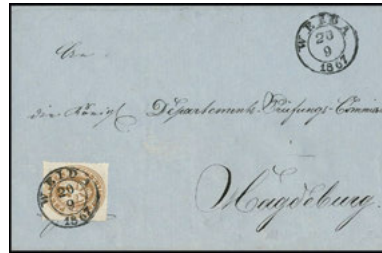 WEIDA
20
9
1867
An
die Königl. Departements-Prüfungs-Commis
Magdeburg.
WEIDA
20
9
1867